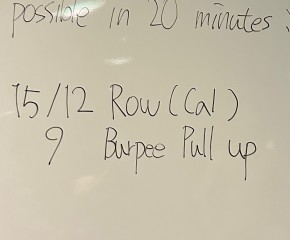 possible in 20 minutes :
15/12 Row (Cal)
9 Burpee Pull up